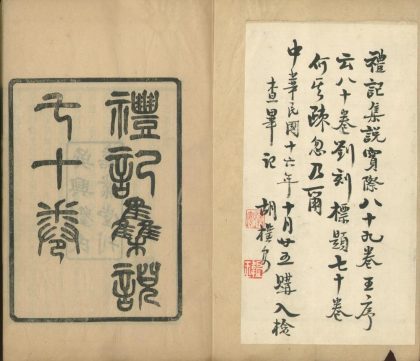 禮記集說實際八十九卷王序
云八十卷劉刻標題七十卷
何其疎忽乃爾
中華民國十六年十月廿五購入檢
查畢記 胡樸安
禮記雧說
七十卷